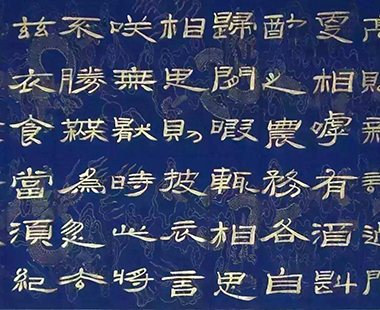 高賦新詩過門
更相嘑有酒斟
酌之農務各自
歸閒暇輒相思
相思則披衣言
咲無厭時此將
不勝無為忽去
茲衣食當須紀